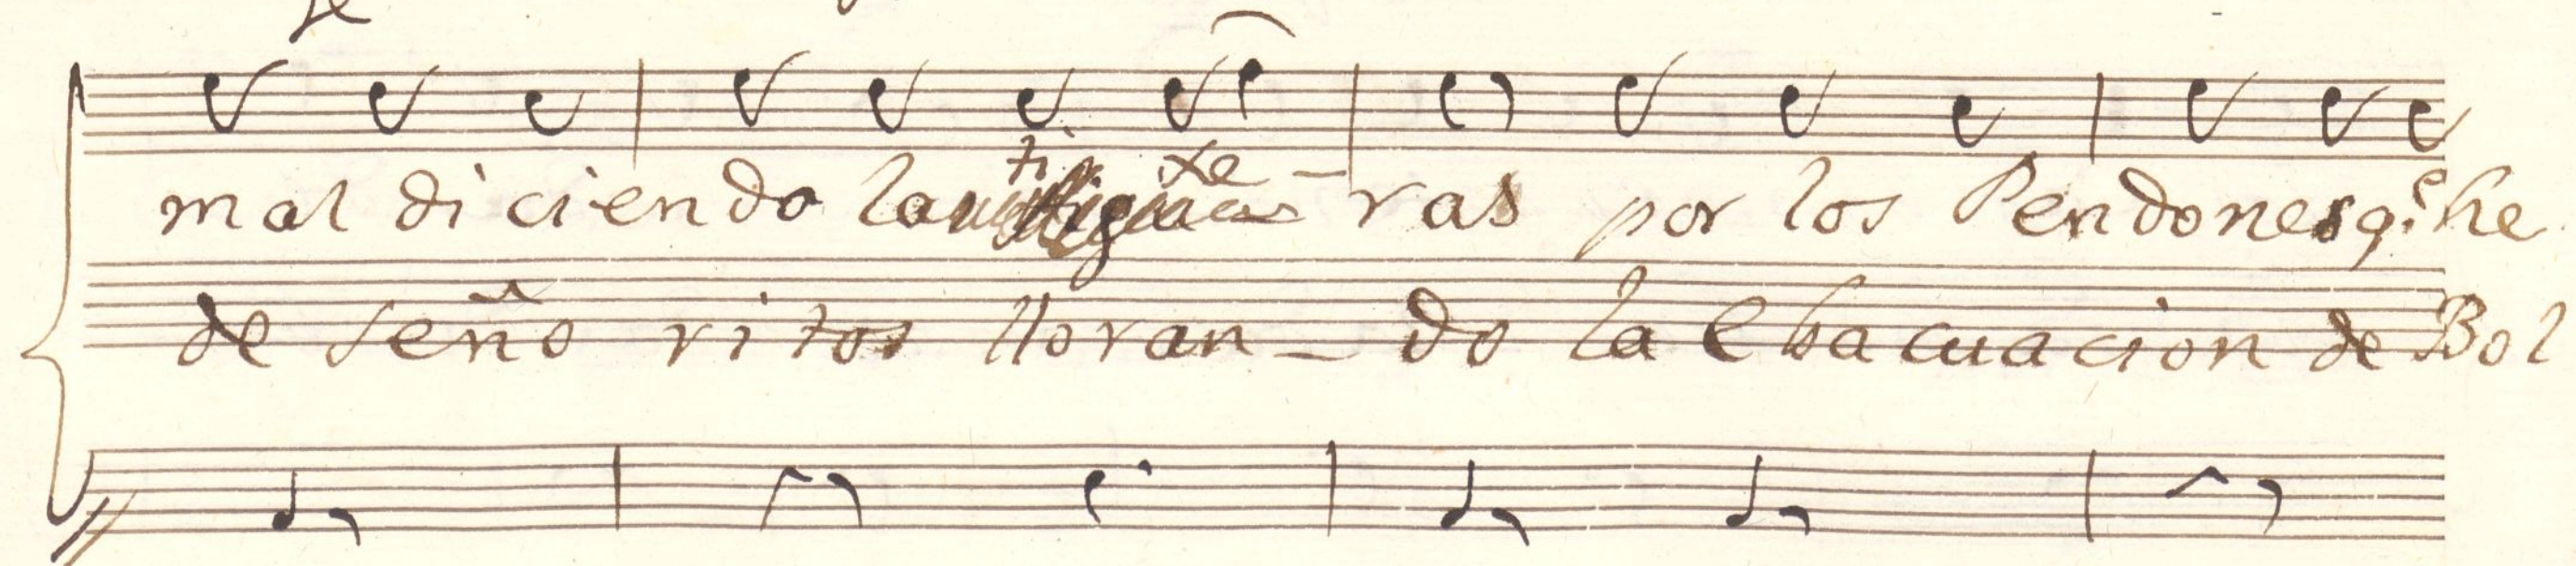 mal diciendo la tixe-ras por los Pendones q.e he
de señoritos lloran-do la Ebacuacion de Bol